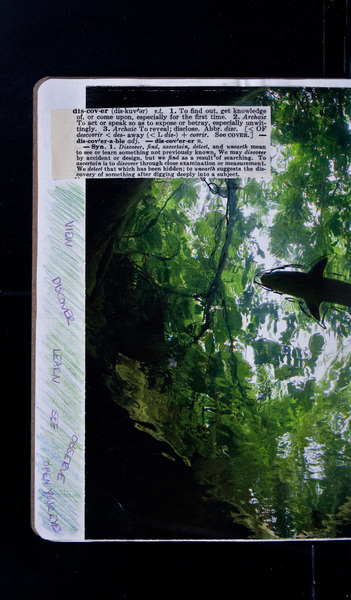 dis·cov·er (dis·kuv′ər) v.t. 1. To find out, get knowledge
of, or come upon, especially for the first time. 2. Archaic
To act or speak so as to expose or betray, especially unwit-
tingly. 3. Archaic To reveal; disclose. Abbr. disc. [< OF
descovrir < des- away (< L dis-) + covrir. See COVER.] —
dis·cov′er·a·ble adj. — dis·cov′er·er n.
— Syn. 1. Discover, find, ascertain, detect, and unearth mean
to see or learn something not previously known. We may discover
by accident or design, but we find as a result of searching. To
ascertain is to discover through close examination or measurement.
We detect that which has been hidden; to unearth suggests the dis-
covery of something after digging deeply into a subject.
VIEW
DISCOVER
SEE
OBSERVE
OPEN YOUR EYES